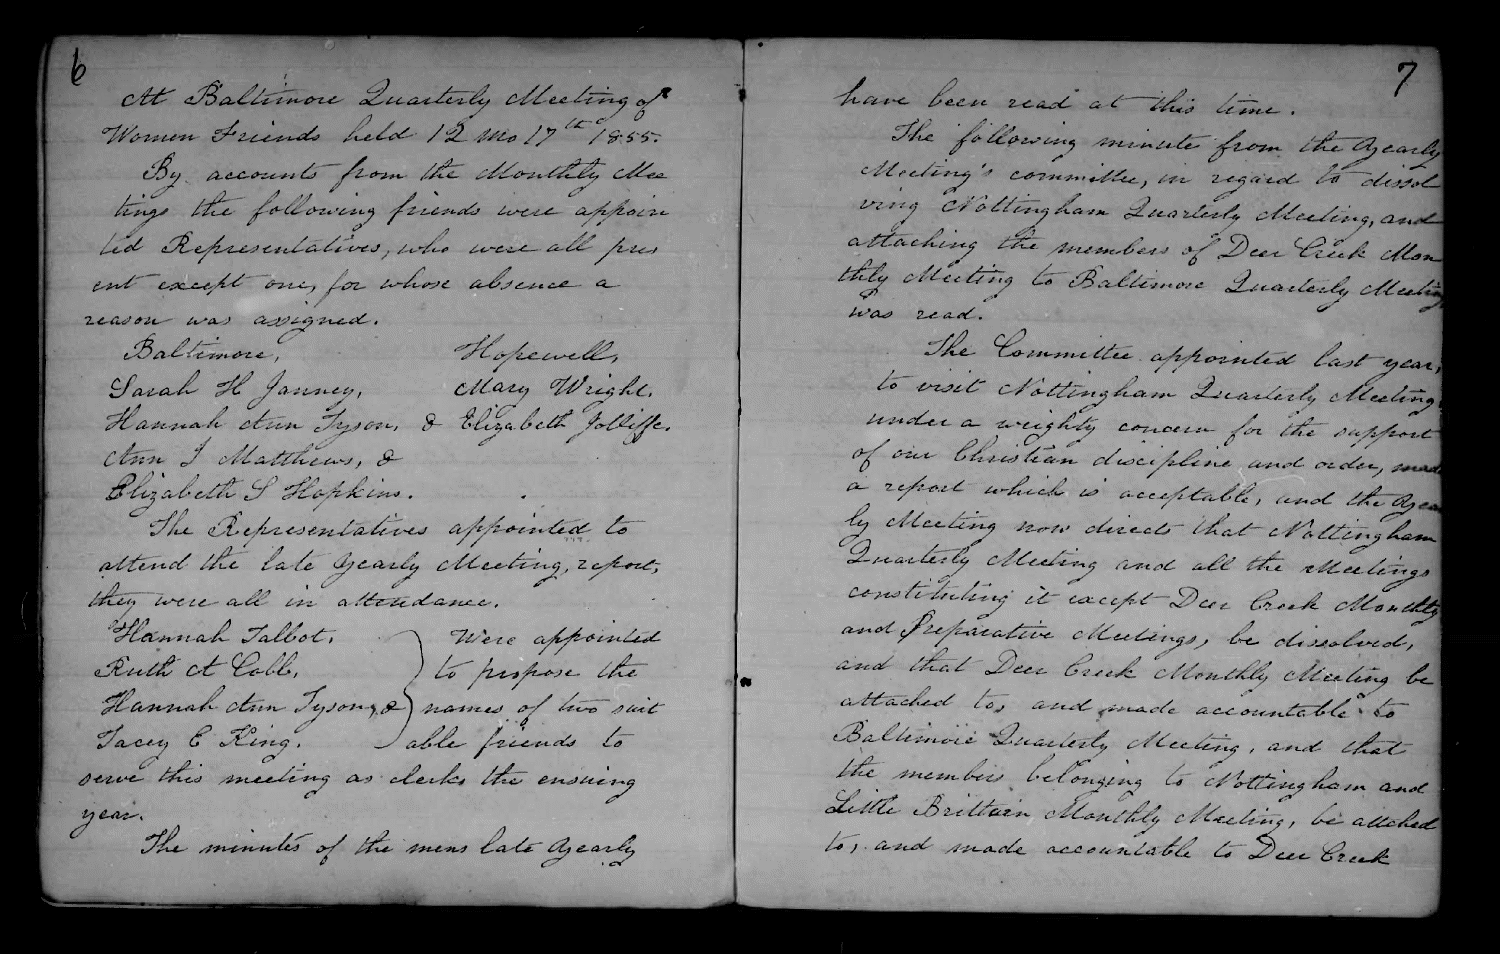 6
At Baltimore Quarterly Meeting of
Women Friends held 12 mo 17th 1855.
By accounts from the Monthly Mee
tings the following friends were appoin
ted Representatives, who were all pres
ent except one, for whose absence a
reason was assigned.
Baltimore, Hopewell,
Sarah H Janney, Mary Wright,
Hannah Ann Tyson, & Elizabeth Jolliffe.
Ann J Matthews, &
Elizabeth S Hopkins.
The Representatives appointed to
attend the late Yearly Meeting, report,
they were all in attendance.
Hannah Talbot, Were appointed
Ruth A Cobb, to propose the
Hannah Ann Tyson, & names of two suit
Tacey E King. able friends to
serve this meeting as clerks the ensuing
year.
The minutes of the mens late Yearly
7
have been read at this time.
The following minute from the Yearly
Meeting's committee, in regard to dissol
ving Nottingham Quarterly Meeting, and
attaching the members of Deer Creek Mon
thly Meeting to Baltimore Quarterly Meeting
was read.
The Committee appointed last year,
to visit Nottingham Quarterly Meeting
under a weighty concern for the support
of our Christian discipline and order, made
a report which is acceptable, and the Year
ly Meeting now directs that Nottingham
Quarterly Meeting and all the Meetings
constituting it except Deer Creek Monthly
and Preparative Meetings, be dissolved,
and that Deer Creek Monthly Meeting be
attached to, and made accountable to
Baltimore Quarterly Meeting, and that
the members belonging to Nottingham and
Little Brittain Monthly Meeting, be attached
to, and made accountable to Deer Creek